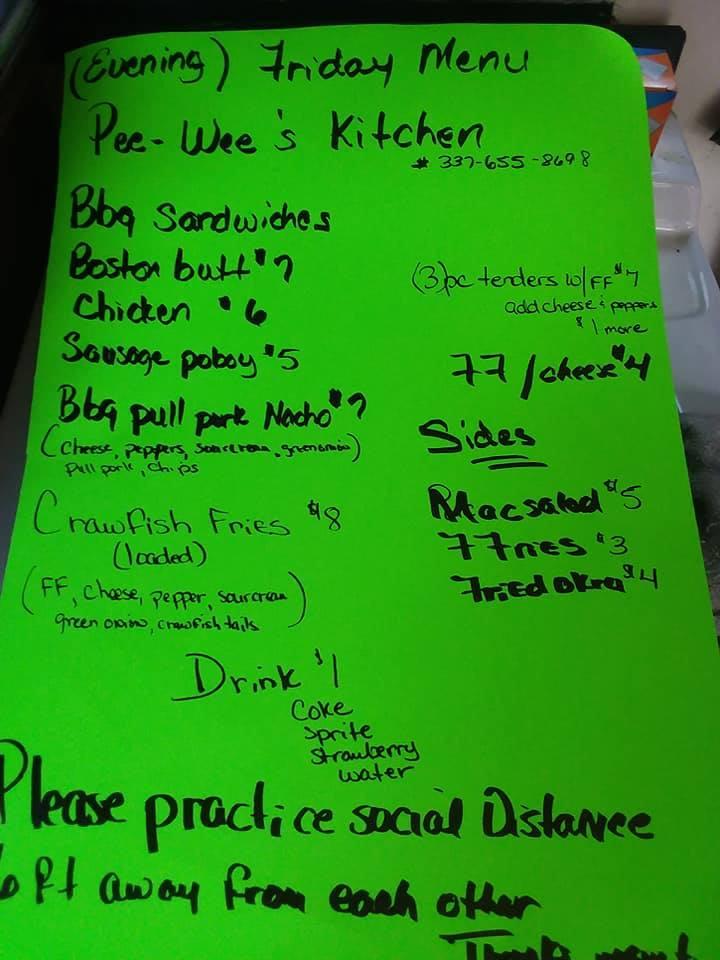 (Evening) Friday Menu
Pee-Wee's Kitchen
# 337-655-8698
Bbq Sandwiches
Boston butt $7
Chicken $6
Sausage poboy $5
Bbq pull pork Nacho $7
(Cheese, peppers, sourcream, green onion)
pull pork, chips
Crawfish Fries $8
(loaded)
(FF, cheese, pepper, sourcream
green onion, crawfish tails)
(3)pc tenders w/FF $7
add cheese & peppers
$1 more
FF/cheese $4
Sides
Macsalad $5
FFries $3
Fried okra $4
Drink $1
Coke
Sprite
Strawberry
water
Please practice social Distance
6 ft away from each other